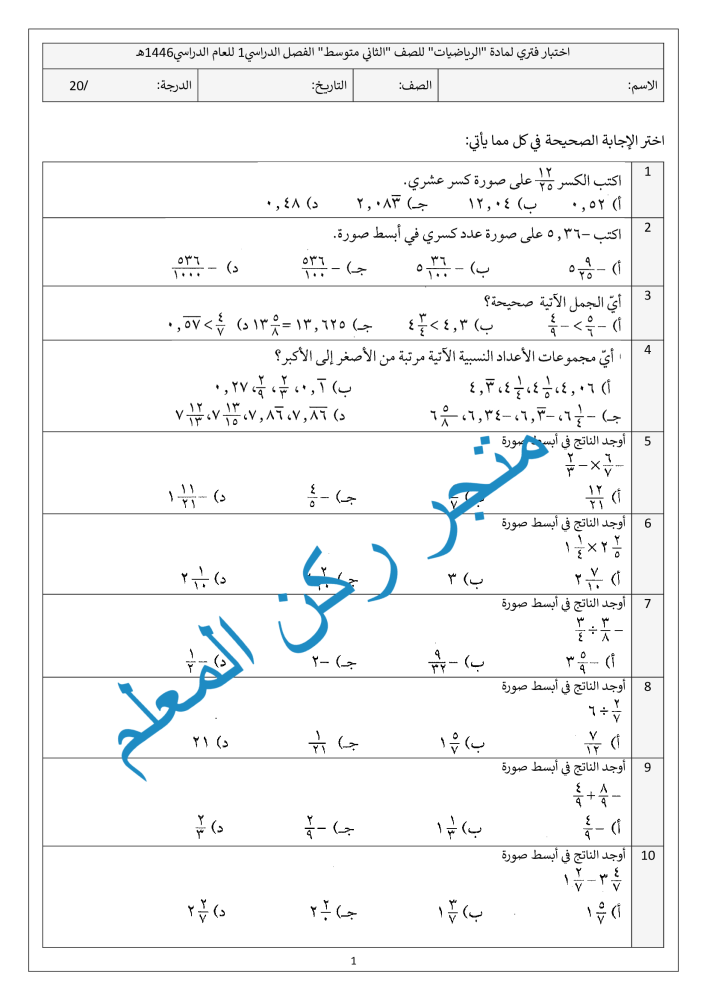 اختبار فتري لمادة "الرياضيات" للصف "الثاني متوسط" الفصل الدراسي1 للعام الدراسي1446هـ
الاسم: الصف: التاريخ: الدرجة: /20
اختر الإجابة الصحيحة في كل مما يأتي:
1 اكتب الكسر ١٢/٢٥ على صورة كسر عشري.
أ) ٠,٥٢ ب) ١٢,٠٤ جـ) ٢,٠٨٣̅ د) ٠,٤٨
2 اكتب –٥,٣٦ على صورة عدد كسري في أبسط صورة.
أ) –٥ ٩/٢٥ ب) –٥ ٣٦/١٠٠ جـ) – ٥٣٦/١٠٠ د) – ٥٣٦/١٠٠٠
3 أيّ الجمل الآتية صحيحة؟
أ) –٥/٦ > –٤/٩ ب) ٤,٣ > ٤ ٣/٤ جـ) ١٣,٦٢٥ = ١٣ ٥/٨ د) ٤/٧ > ٠,٥٧̅
4 أيّ مجموعات الأعداد النسبية الآتية مرتبة من الأصغر إلى الأكبر؟
أ) ٤,٠٦، ٤ ١/٥، ٤ ١/٤، ٤,٣̅ ب) ٠,٦̅، ٢/٣، ٢/٩، ٠,٢٧
جـ) –٦ ١/٤، –٦,٣̅، –٦,٣٤، –٦ ٥/٨ د) ٧,٨٦̅، ٧,٨٦̅، ٧ ١٣/١٥، ٧ ١٢/١٣
5 أوجد الناتج في أبسط صورة
–٦/٧ × –٢/٣
أ) ١٢/٢١ جـ) –٤/٥ د) –١ ١١/٢١
6 أوجد الناتج في أبسط صورة
٢ ٢/٥ × ١ ١/٤
أ) ٢ ٧/١٠ ب) ٣ جـ) د) ٢ ١/١٠
7 أوجد الناتج في أبسط صورة
–٣/٨ ÷ ٣/٤
أ) –٣ ٥/٩ ب) –٩/٣٢ جـ) –٢ د) –١/٢
8 أوجد الناتج في أبسط صورة
٢/٧ ÷ ٦
أ) ٧/١٢ ب) ١ ٥/٧ جـ) ١/٢١ د) ٢١
9 أوجد الناتج في أبسط صورة
–٨/٩ + ٤/٩
أ) –٤/٩ ب) ١ ١/٣ جـ) –٢/٩ د) ٢/٣
10 أوجد الناتج في أبسط صورة
٣ ٤/٧ – ١ ٢/٧
أ) ١ ٥/٧ ب) ١ ٣/٧ جـ) ٢ ٢/٠ د) ٢ ٢/٧
متجر ركن المعلم
1